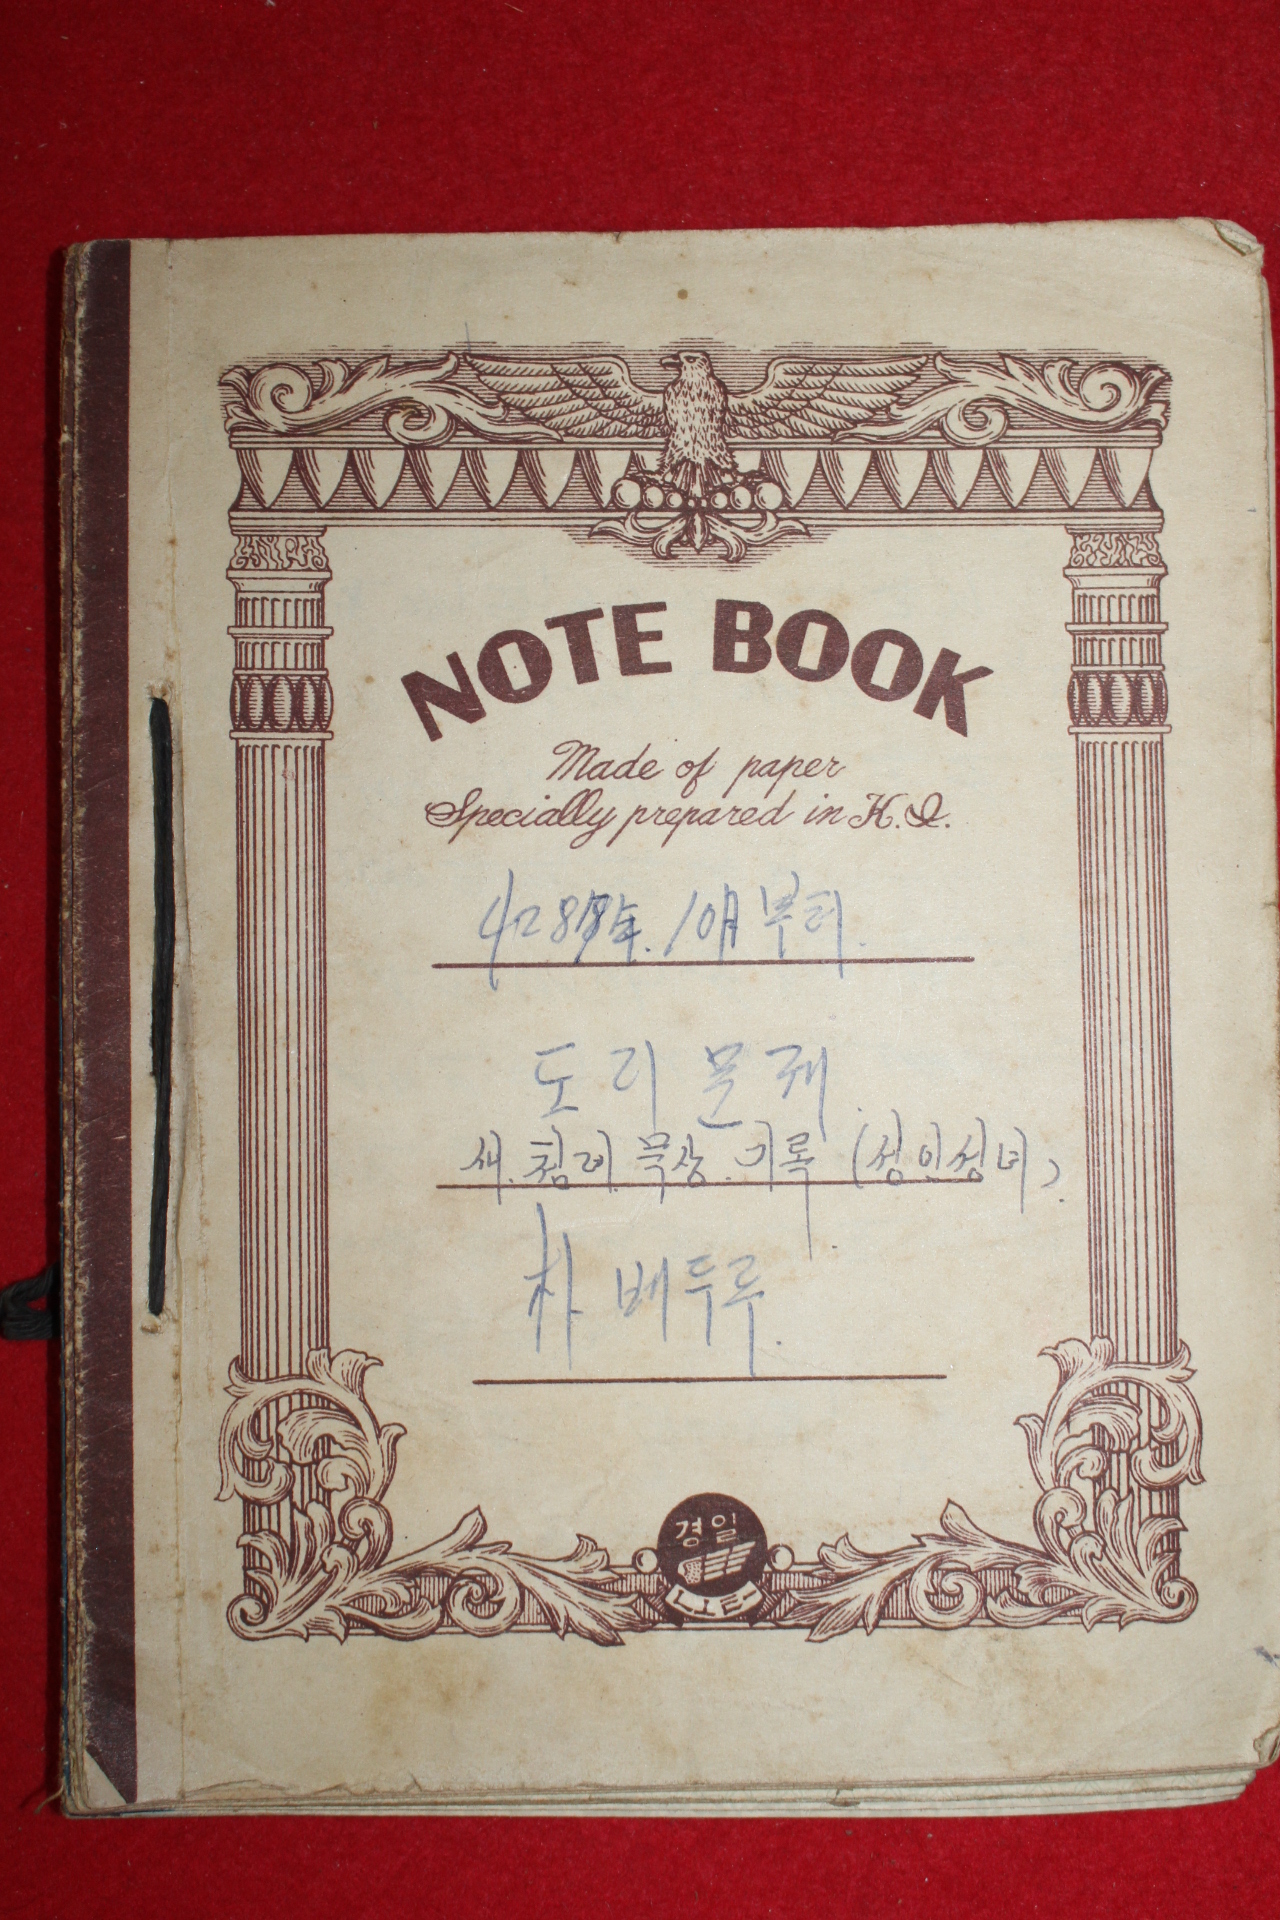 NOTE BOOK
Made of paper
Specially prepared in K.I.
4288年. 10月 부터.
도리문궤.
새.침례.묵상.기록 (성인성녀).
朴 베두루.
경일
노오트